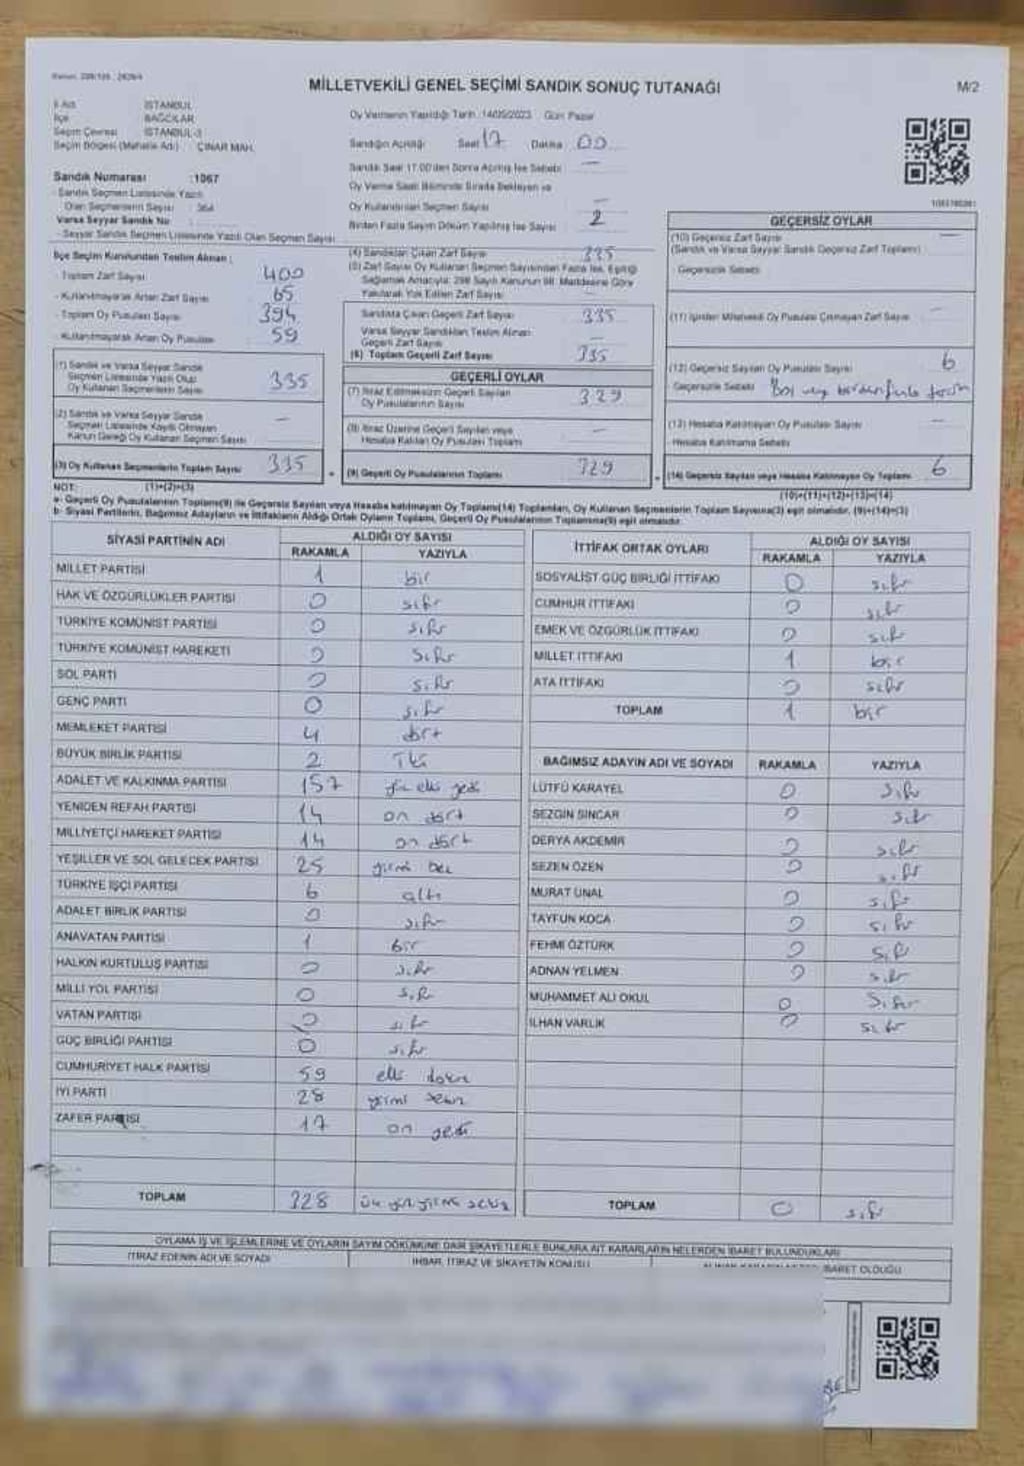 MİLLETVEKİLİ GENEL SEÇİMİ SANDIK SONUÇ TUTANAĞI
M/2
İl Adı İSTANBUL
İlçe BAĞCILAR
Seçim Çevresi İSTANBUL-3
Seçim Bölgesi (Mahalle Adı) ÇINAR MAH.
Oy Vermenin Yapıldığı Tarih: 14/05/2023 Gün Pazar
Sandığın Açıldığı Saat 17 Dakika 00
Sandık Saat 17:00'den Sonra Açılmış İse Sebebi —
Oy Verme Saati Bitiminde Sırada Bekleyen ve
Oy Kullandırılan Seçmen Sayısı —
Birden Fazla Sayım Döküm Yapılmış İse Sayısı 2
Sandık Numarası :1067
- Sandık Seçmen Listesinde Yazılı
Olan Seçmenlerin Sayısı : 394
Varsa Seyyar Sandık No
- Seyyar Sandık Seçmen Listesinde Yazılı Olan Seçmen Sayısı
İlçe Seçim Kurulundan Teslim Alınan :
- Toplam Zarf Sayısı 400
- Kullanılmayarak Artan Zarf Sayısı 65
- Toplam Oy Pusulası Sayısı 394
- Kullanılmayarak Artan Oy Pusulası 59
(1) Sandık ve Varsa Seyyar Sandık
Seçmen Listesinde Yazılı Olup
Oy Kullanan Seçmenlerin Sayısı 335
(2) Sandık ve Varsa Seyyar Sandık
Seçmen Listesinde Kayıtlı Olmayan
Kanun Gereği Oy Kullanan Seçmen Sayısı —
(3) Oy Kullanan Seçmenlerin Toplam Sayısı 335
(1)+(2)=(3)
(4) Sandıktan Çıkan Zarf Sayısı 335
(5) Zarf Sayısı Oy Kullanan Seçmen Sayısından Fazla İse, Eşitliği
Sağlamak Amacıyla; 298 Sayılı Kanunun 98. Maddesine Göre
Yakılarak Yok Edilen Zarf Sayısı —
Sandıkta Çıkan Geçerli Zarf Sayısı 335
Varsa Seyyar Sandıktan Teslim Alınan
Geçerli Zarf Sayısı —
(6) Toplam Geçerli Zarf Sayısı 335
GEÇERLİ OYLAR
(7) İtiraz Edilmeksizin Geçerli Sayılan
Oy Pusulalarının Sayısı 329
(8) İtiraz Üzerine Geçerli Sayılan veya
Hesaba Katılan Oy Pusulası Toplamı —
= (9) Geçerli Oy Pusulalarının Toplamı 329
GEÇERSİZ OYLAR
(10) Geçersiz Zarf Sayısı —
(Sandık ve Varsa Seyyar Sandık Geçersiz Zarf Toplamı)
Geçersizlik Sebebi
(11) İçinden Milletvekili Oy Pusulası Çıkmayan Zarf Sayısı —
(12) Geçersiz Sayılan Oy Pusulası Sayısı 6
Geçersizlik Sebebi Boş veya birden fazla
(13) Hesaba Katılmayan Oy Pusulası Sayısı —
Hesaba Katılmama Sebebi
+ (14) Geçersiz Sayılan veya Hesaba Katılmayan Oy Toplamı 6
(10)+(11)+(12)+(13)=(14)
NOT:
a- Geçerli Oy Pusulalarının Toplamı(9) ile Geçersiz Sayılan veya Hesaba katılmayan Oy Toplamı(14) Toplamları, Oy Kullanan Seçmenlerin Toplam Sayısına(3) eşit olmalıdır. (9)+(14)=(3)
b- Siyasi Partilerin, Bağımsız Adayların ve İttifakların Aldığı Ortak Oyların Toplamı, Geçerli Oy Pusulalarının Toplamına(9) eşit olmalıdır.
SİYASİ PARTİNİN ADI ALDIĞI OY SAYISI
RAKAMLA YAZIYLA
MİLLET PARTİSİ 1 bir
HAK VE ÖZGÜRLÜKLER PARTİSİ 0 sıfır
TÜRKİYE KOMÜNİST PARTİSİ 0 sıfır
TÜRKİYE KOMÜNİST HAREKETİ 0 sıfır
SOL PARTİ 0 sıfır
GENÇ PARTİ 0 sıfır
MEMLEKET PARTİSİ 4 dört
BÜYÜK BİRLİK PARTİSİ 2 İki
ADALET VE KALKINMA PARTİSİ 157 yüz elli yedi
YENİDEN REFAH PARTİSİ 14 on dört
MİLLİYETÇİ HAREKET PARTİSİ 14 on dört
YEŞİLLER VE SOL GELECEK PARTİSİ 25 yirmi beş
TÜRKİYE İŞÇİ PARTİSİ 6 altı
ADALET BİRLİK PARTİSİ 0 sıfır
ANAVATAN PARTİSİ 1 bir
HALKIN KURTULUŞ PARTİSİ 0 sıfır
MİLLİ YOL PARTİSİ 0 sıfır
VATAN PARTİSİ 0 sıfır
GÜÇ BİRLİĞİ PARTİSİ 0 sıfır
CUMHURİYET HALK PARTİSİ 59 elli dokuz
İYİ PARTİ 28 yirmi sekiz
ZAFER PARTİSİ 17 on yedi
TOPLAM 328 üç yüz yirmi sekiz
İTTİFAK ORTAK OYLARI ALDIĞI OY SAYISI
RAKAMLA YAZIYLA
SOSYALİST GÜÇ BİRLİĞİ İTTİFAKI 0 sıfır
CUMHUR İTTİFAKI 0 sıfır
EMEK VE ÖZGÜRLÜK İTTİFAKI 0 sıfır
MİLLET İTTİFAKI 1 bir
ATA İTTİFAKI 0 sıfır
TOPLAM 1 bir
BAĞIMSIZ ADAYIN ADI VE SOYADI RAKAMLA YAZIYLA
LÜTFÜ KARAYEL 0 sıfır
SEZGİN SİNCAR 0 sıfır
DERYA AKDEMİR 0 sıfır
SEZEN ÖZEN 0 sıfır
MURAT ÜNAL 0 sıfır
TAYFUN KOCA 0 sıfır
FEHMİ ÖZTÜRK 0 sıfır
ADNAN YELMEN 0 sıfır
MUHAMMET ALİ OKUL 0 sıfır
İLHAN VARLIK 0 sıfır
TOPLAM 0 sıfır
OYLAMA İŞ VE İŞLEMLERİNE VE OYLARIN SAYIM DÖKÜMÜNE DAİR ŞİKAYETLERLE BUNLARA AİT KARARLARIN NELERDEN İBARET BULUNDUKLARI
İTİRAZ EDENİN ADI VE SOYADI İHBAR, İTİRAZ VE ŞİKAYETİN KONUSU İBARET OLDUĞU